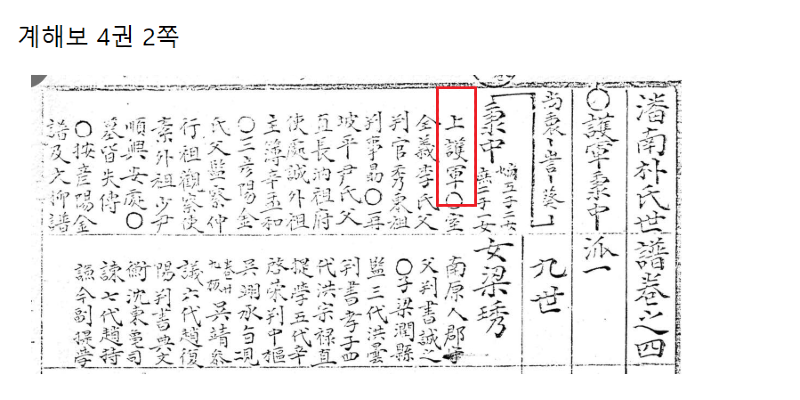 계해보 4권 2쪽
潘南朴氏世譜卷之四
○護軍秉中派一
尙衷
秉中
嫡五子二女
庶二子一女
上護軍○室
全義李氏父
判官秀東祖
判事勗○再
坡平尹氏父
直長汭祖府
使處誠外祖
主簿辛孟和
○三彦陽金
氏父監察仲
行祖觀察使
素外祖少尹
順興安處○
墓皆失傳
○按彦陽金
譜及文柳譜
九世
女梁琇
南原人郡守
父判書誠之
○子梁潤縣
監三代洪曇
判書孝子四
代洪宗祿直
提學五代辛
啓榮判中樞
吳翊承旨見
吳靖參
議六代趙復
陽判書典文
衡沈東龜司
諫七代趙持
謙今副提學